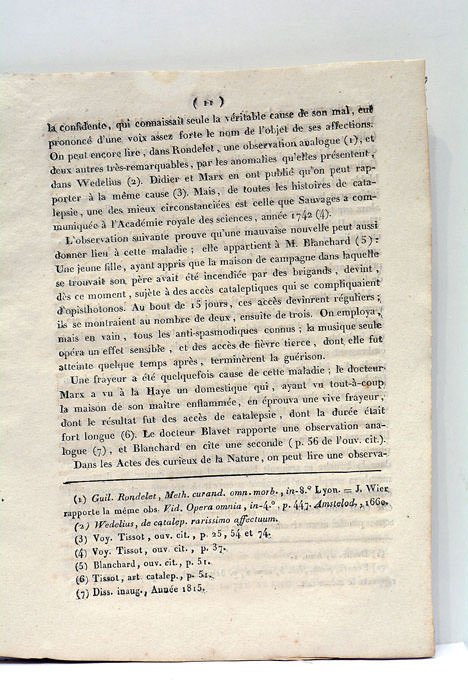 ( 11 )
la confidente, qui connaissait seule la véritable cause de son mal, eut
prononcé d'une voix assez forte le nom de l'objet de ses affections.
On peut encore lire, dans Rondelet, une observation analogue (1), et
deux autres très-remarquables, par les anomalies qu'elles présentent,
dans Wedelius (2). Didier et Marx en ont publié qu'on peut rap-
porter à la même cause (3). Mais, de toutes les histoires de cata-
lepsie, une des mieux circonstanciées est celle que Sauvages a com-
muniquée à l'Académie royale des sciences, année 1742 (4).
L'observation suivante prouve qu'une mauvaise nouvelle peut aussi
donner lieu à cette maladie ; elle appartient à M. Blanchard (5) :
Une jeune fille, ayant appris que la maison de campagne dans laquelle
se trouvait son père avait été incendiée par des brigands, devint,
dès ce moment, sujète à des accès cataleptiques qui se compliquaient
d'opisthotonos. Au bout de 15 jours, ces accès devinrent réguliers ;
ils se montraient au nombre de deux, ensuite de trois. On employa,
mais en vain, tous les anti-spasmodiques connus ; la musique seule
opéra un effet sensible, et des accès de fièvre tierce, dont elle fut
atteinte quelque temps après, terminèrent la guérison.
Une frayeur a été quelquefois cause de cette maladie ; le docteur
Marx a vu à la Haye un domestique qui, ayant vu tout-à-coup
la maison de son maître enflammée, en éprouva une vive frayeur,
dont le résultat fut des accès de catalepsie, dont la durée était
fort longue (6). Le docteur Blavet rapporte une observation ana-
logue (7), et Blanchard en cite une seconde (p. 56 de l'ouv. cit.).
Dans les Actes des curieux de la Nature, on peut lire une observa-
(1) Guil. Rondelet, Meth. curand. omn. morb., in-8.° Lyon. = J. Wier
rapporte la même obs. Vid. Opera omnia, in-4.°, p. 447. Amstelod., 1660.
(2) Wedelius, de catalep. rarissimo affectuum.
(3) Voy. Tissot, ouv. cit., p. 25, 54 et 74.
(4) Voy. Tissot, ouv. cit., p. 37.
(5) Blanchard, ouv. cit., p. 51.
(6) Tissot, art. catalep., p. 51.
(7) Diss. inaug., Année 1815.